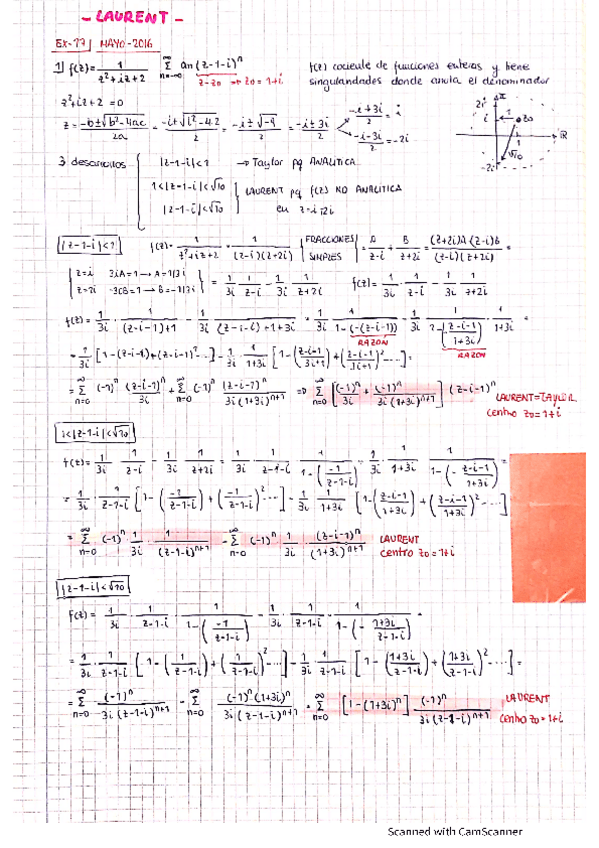 - LAURENT -
EX-17 | MAYO-2016
1) f(z) = 1/(z²+iz+2) ∞Σn=-∞ an (z-1-i)^n f(z) cociente de funciones enteras y tiene
z-z0 ⇒ z0 = 1+i singularidades donde anula el denominador
z²+iz+2 = 0
z = (-b±√(b²-4ac))/2a = (-i±√(i²-4·2))/2 = (-i±√-9)/2 = (-i±3i)/2 (-i+3i)/2 = i
(-i-3i)/2 = -2i
2i i z0 1 √10 -2i R
3 desarrollos |z-1-i|<1 → Taylor pq ANALÍTICA
1<|z-1-i|<√10 LAURENT pq f(z) NO ANALÍTICA
|z-1-i|<√10 en
|z-1-i|<1 f(z) = 1/(z²+iz+2) = 1/((z-i)(z+2i)) FRACCIONES SIMPLES A/(z-i) + B/(z+2i) = ((z+2i)A (z-i)B)/((z-i)(z+2i)) =
z=i 3iA=1 → A=1/3i
z=2i -3iB=1 → B=-1/3i = 1/3i · 1/(z-i) - 1/3i · 1/(z+2i) f(z) = 1/3i · 1/(z-i) - 1/3i · 1/(z+2i)
f(z) = 1/3i · 1/((z-i-1)+1) - 1/3i · 1/((z-i-1)+1+3i) = 1/3i · 1/(1-(-(z-i-1))) - 1/3i · 1/(1-(z-i-1)/(1+3i)) · 1/(1+3i) =
RAZÓN RAZÓN
= 1/3i [1-(z-i-1)+(z-i-1)²...] - 1/3i · 1/(1+3i) [1-((z-i-1)/(3i+1))+((z-i-1)/(1+3i))²...] =
= ∞Σn=0 (-1)^n (z-i-1)^n/3i + ∞Σn=0 (-1)^n (z-i-1)^n/(3i(1+3i)^(n+1)) ⇒ ∞Σn=0 [(-1)^n/3i + (-1)^n/(3i(1+3i)^(n+1))] (z-i-1)^n LAURENT=TAYLOR
centro z0=1+i
1<|z-1-i|<√10
f(z) = 1/3i · 1/(z-i) - 1/3i · 1/(z+2i) = 1/3i · 1/(z-1-i) · 1/(1-(-1/(z-1-i))) - 1/3i · 1/(1+3i) · 1/(1-(-(z-i-1)/(1+3i))) =
= 1/3i · 1/(z-1-i) [1-(1/(z-1-i))+(1/(z-1-i))²...] - 1/3i · 1/(1+3i) [1-((z-i-1)/(1+3i))+((z-i-1)/(1+3i))²....]
= ∞Σn=0 (-1)^n · 1/3i · 1/(z-1-i)^(n+1) - ∞Σn=0 (-1)^n 1/3i · (z-i-1)^n/(1+3i)^(n+1) LAURENT
centro z0=1+i
|z-1-i|<√10
f(z) = 1/3i · 1/(z-1-i) · 1/(1-(-1/(z-1-i))) - 1/3i · 1/(z-1-i) · 1/(1-(-(1+3i)/(z-1-i))) =
= 1/3i · 1/(z-1-i) [1-(1/(z-1-i))+(1/(z-1-i))²...] - 1/3i · 1/(z-1-i) [1-((1+3i)/(z-1-i))+((1+3i)/(z-1-i))²...] =
= ∞Σn=0 (-1)^n/(3i(z-1-i)^(n+1)) - ∞Σn=0 (-1)^n(1+3i)^n/(3i(z-1-i)^(n+1)) = ∞Σn=0 [1-(1+3i)^n] (-1)^n/(3i(z-1-i)^(n+1)) LAURENT
centro z0=1+i
Scanned with CamScanner